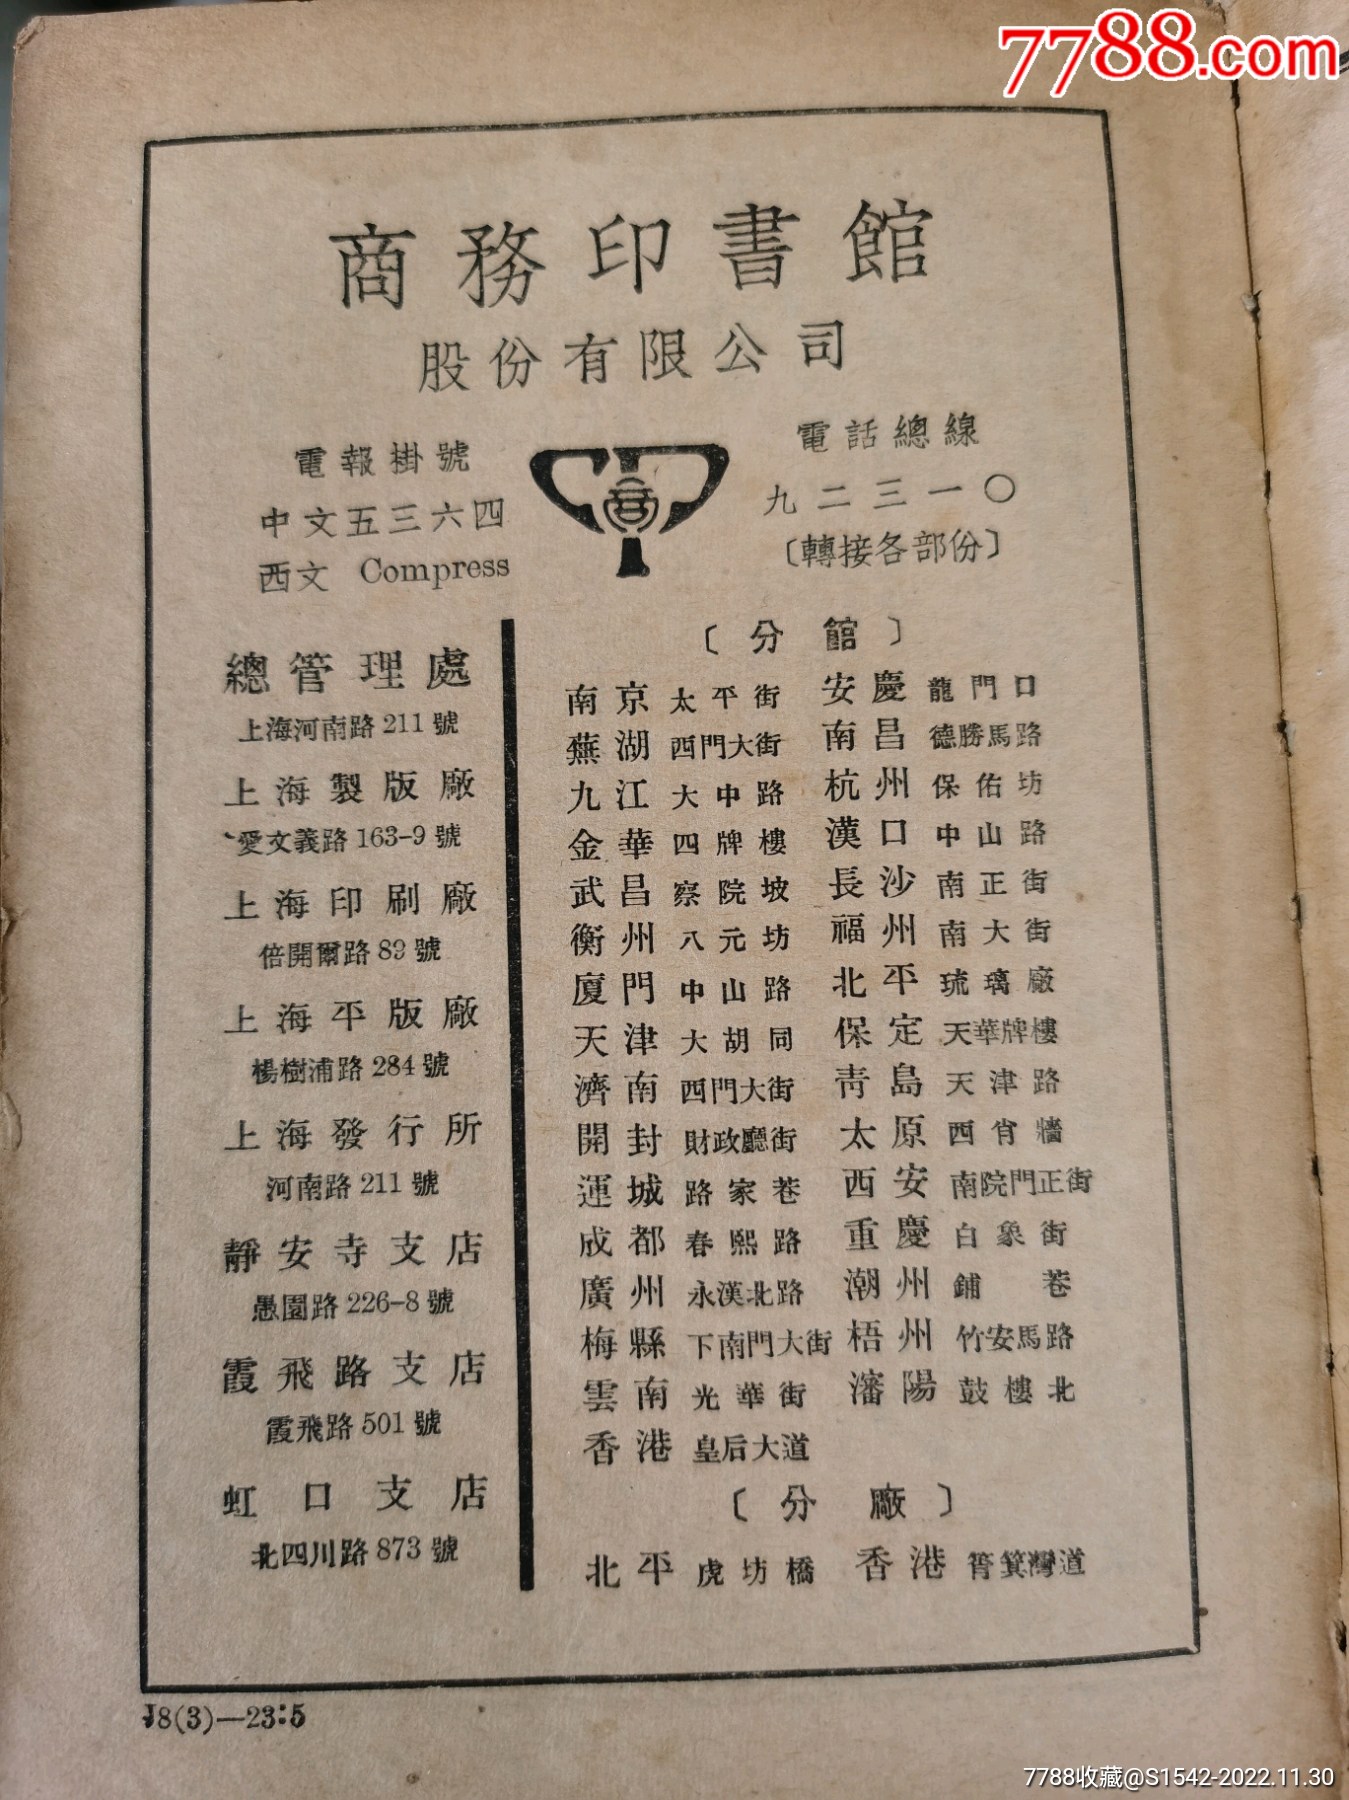 7788.com
商務印書館
股份有限公司
電報掛號
中文五三六四
西文 Compress
商
電話總線
九二三一〇
〔轉接各部份〕
總管理處
上海河南路211號
上海製版廠
愛文義路163-9號
上海印刷廠
倍開爾路89號
上海平版廠
楊樹浦路284號
上海發行所
河南路211號
靜安寺支店
愚園路226-8號
霞飛路支店
霞飛路501號
虹口支店
北四川路873號
〔分館〕
南京 太平街 安慶 龍門口
蕪湖 西門大街 南昌 德勝馬路
九江 大中路 杭州 保佑坊
金華 四牌樓 漢口 中山路
武昌 察院坡 長沙 南正街
衡州 八元坊 福州 南大街
廈門 中山路 北平 琉璃廠
天津 大胡同 保定 天華牌樓
濟南 西門大街 青島 天津路
開封 財政廳街 太原 西肖牆
運城 路家巷 西安 南院門正街
成都 春熙路 重慶 白象街
廣州 永漢北路 潮州 鋪巷
梅縣 下南門大街 梧州 竹安馬路
雲南 光華街 瀋陽 鼓樓北
香港 皇后大道
〔分廠〕
北平 虎坊橋 香港 筲箕灣道
J8(3)—23:5
7788收藏@S1542-2022.11.30